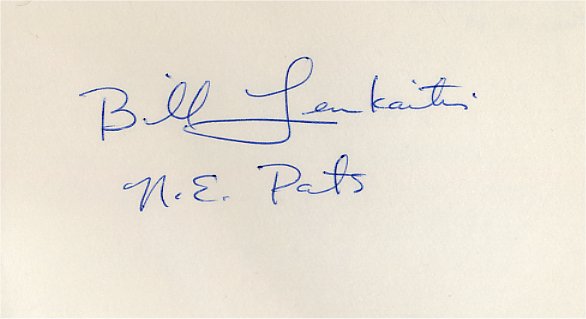 Bill Lenkaitis
N.E. Pats